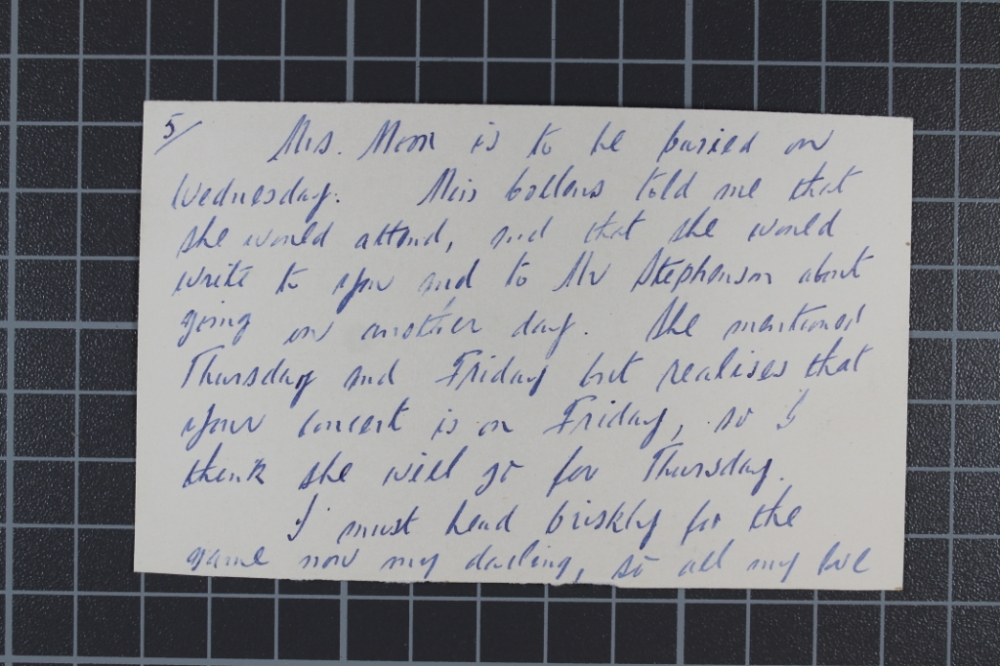 5/ Mrs. Moon is to be buried on
Wednesday. Miss Collens told me that
she would attend, and that she would
write to you and to Mr Stephenson about
going on another day. She mentioned
Thursday and Friday but realises that
your concert is on Friday, so I
think she will go for Thursday.
I must head briskly for the
game now my darling, so all my love